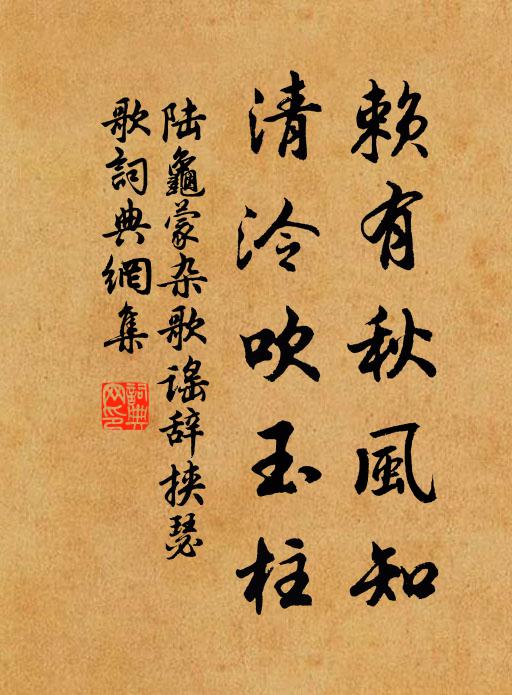 赖有秋風知
清泠吹玉柱
陆龜蒙杂歌谣辞挟瑟
歌詞典網集
詞典
网印